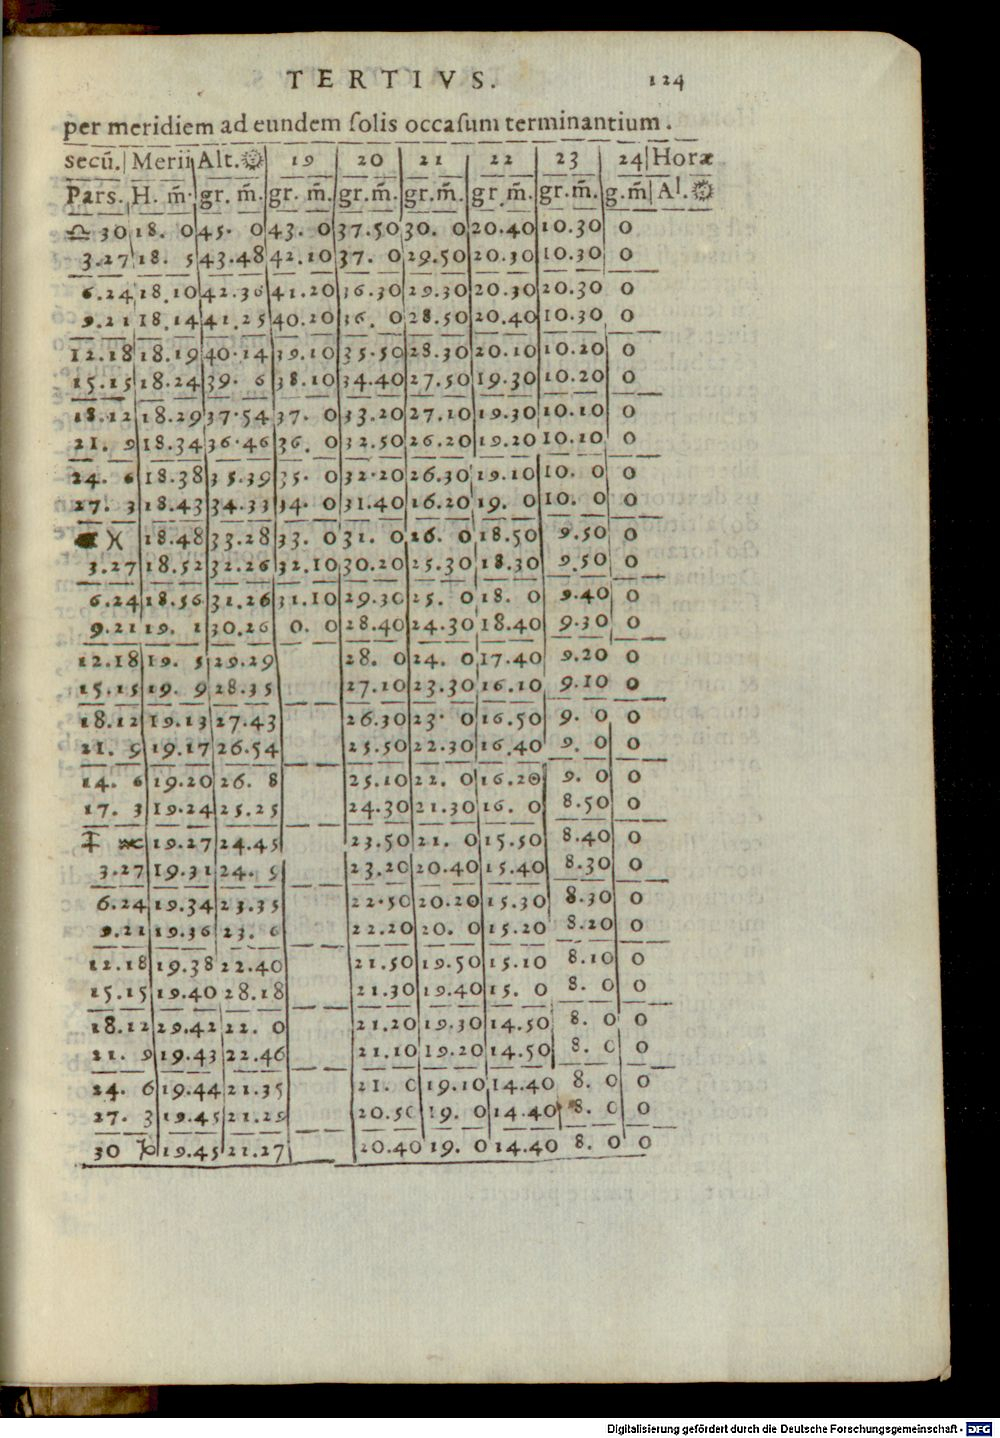 TERTIVS. 124
per meridiem ad eundem solis occasum terminantium.
secū. Merii Alt.☼ 19 20 21 22 23 24 Horæ
Pars. H. m̄. gr. m̄. gr. m̄. gr.m̄. gr.m̄. gr m̄. gr.m̄. g.m̄ Al.☼
♎ 30 18. 0 45. 0 43. 0 37.50 30. 0 20.40 10.30 0
3.27 18. 5 43.48 42.10 37. 0 29.50 20.30 10.30 0
6.24 18.10 42.36 41.20 36.30 29.30 20.30 20.30 0
9.21 18.14 41.25 40.20 36. 0 28.50 20.40 10.30 0
12.18 18.19 40.14 39.10 35.50 28.30 20.10 10.20 0
15.15 18.24 39. 6 38.10 34.40 27.50 19.30 10.20 0
18.12 18.29 37.54 37. 0 33.20 27.10 19.30 10.10 0
21. 9 18.34 36.46 36. 0 32.50 26.20 19.20 10.10 0
24. 6 18.38 35.39 35. 0 32.20 26.30 19.10 10. 0 0
27. 3 18.43 34.33 34. 0 31.40 16.20 19. 0 10. 0 0
♓ 18.48 33.28 33. 0 31. 0 26. 0 18.50 9.50 0
3.27 18.52 32.26 32.10 30.20 25.30 18.30 9.50 0
6.24 18.56 31.26 31.10 29.30 25. 0 18. 0 9.40 0
9.21 19. 1 30.26 0. 0 28.40 24.30 18.40 9.30 0
12.18 19. 5 29.29 28. 0 24. 0 17.40 9.20 0
15.15 19. 9 28.35 27.10 23.30 16.10 9.10 0
18.12 19.13 27.43 26.30 23. 0 16.50 9. 0 0
21. 9 19.17 26.54 25.50 22.30 16.40 9. 0 0
14. 6 19.20 26. 8 25.10 22. 0 16.20 9. 0 0
17. 3 19.24 25.25 24.30 21.30 16. 0 8.50 0
♐ ♒ 19.27 24.45 23.50 21. 0 15.50 8.40 0
3.27 19.31 24. 5 23.20 20.40 15.40 8.30 0
6.24 19.34 23.35 22.50 20.20 15.30 8.30 0
9.21 19.36 23. 6 22.20 20. 0 15.20 8.20 0
12.18 19.38 22.40 21.50 19.50 15.10 8.10 0
15.15 19.40 28.18 21.30 19.40 15. 0 8. 0 0
18.12 29.42 22. 0 21.20 19.30 14.50 8. 0 0
21. 9 19.43 22.46 21.10 19.20 14.50 8. 0 0
24. 6 19.44 21.35 21. 0 19.10 14.40 8. 0 0
27. 3 19.45 21.29 20.50 19. 0 14.40 8. 0 0
30 ♑ 19.45 21.27 20.40 19. 0 14.40 8. 0 0
Digitalisierung gefördert durch die Deutsche Forschungsgemeinschaft - DFG